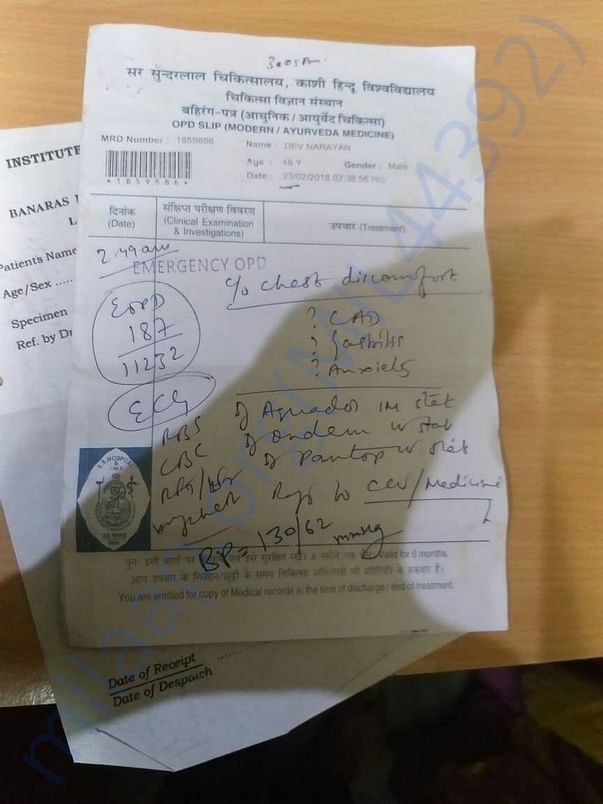 3:05 Am
सर सुन्दरलाल चिकित्सालय, काशी हिन्दू विश्वविद्यालय
चिकित्सा विज्ञान संस्थान
बहिरंग-पत्र (आधुनिक / आयुर्वेद चिकित्सा)
OPD SLIP (MODERN / AYURVEDA MEDICINE)
MRD Number : 1859886
Name : DEV NARAYAN
Age : 48 Y Gender : Male
*1859886*
Date : 23/02/2018 02:38:56 Hrs
दिनांक
(Date)
संक्षिप्त परीक्षण विवरण
(Clinical Examination
& Investigations)
उपचार (Treatment)
2:49 am
EMERGENCY OPD
c/o chest discomfort
EOPD
187
11232
? CAD
? Gastritis
? Anxiety
ECG
RBS
CBC
IM stat
IV stat
Pantop IV stat
Medicine
BP = 130/62 mmHg
S.S. HOSPITAL
Valid for 6 months.
आप उपचार के
के समय चिकित्सा अभिलेखों की प्रतिलिपि के हकदार हैं।
You are entitled for copy of Medical records at the time of discharge / end of treatment.
INSTITUTE
BANARAS
Patients Name
Age/Sex .....
Specimen
Ref. by Dr
Date of Receipt
Date of Despatch
milaap.org(MIL44392)